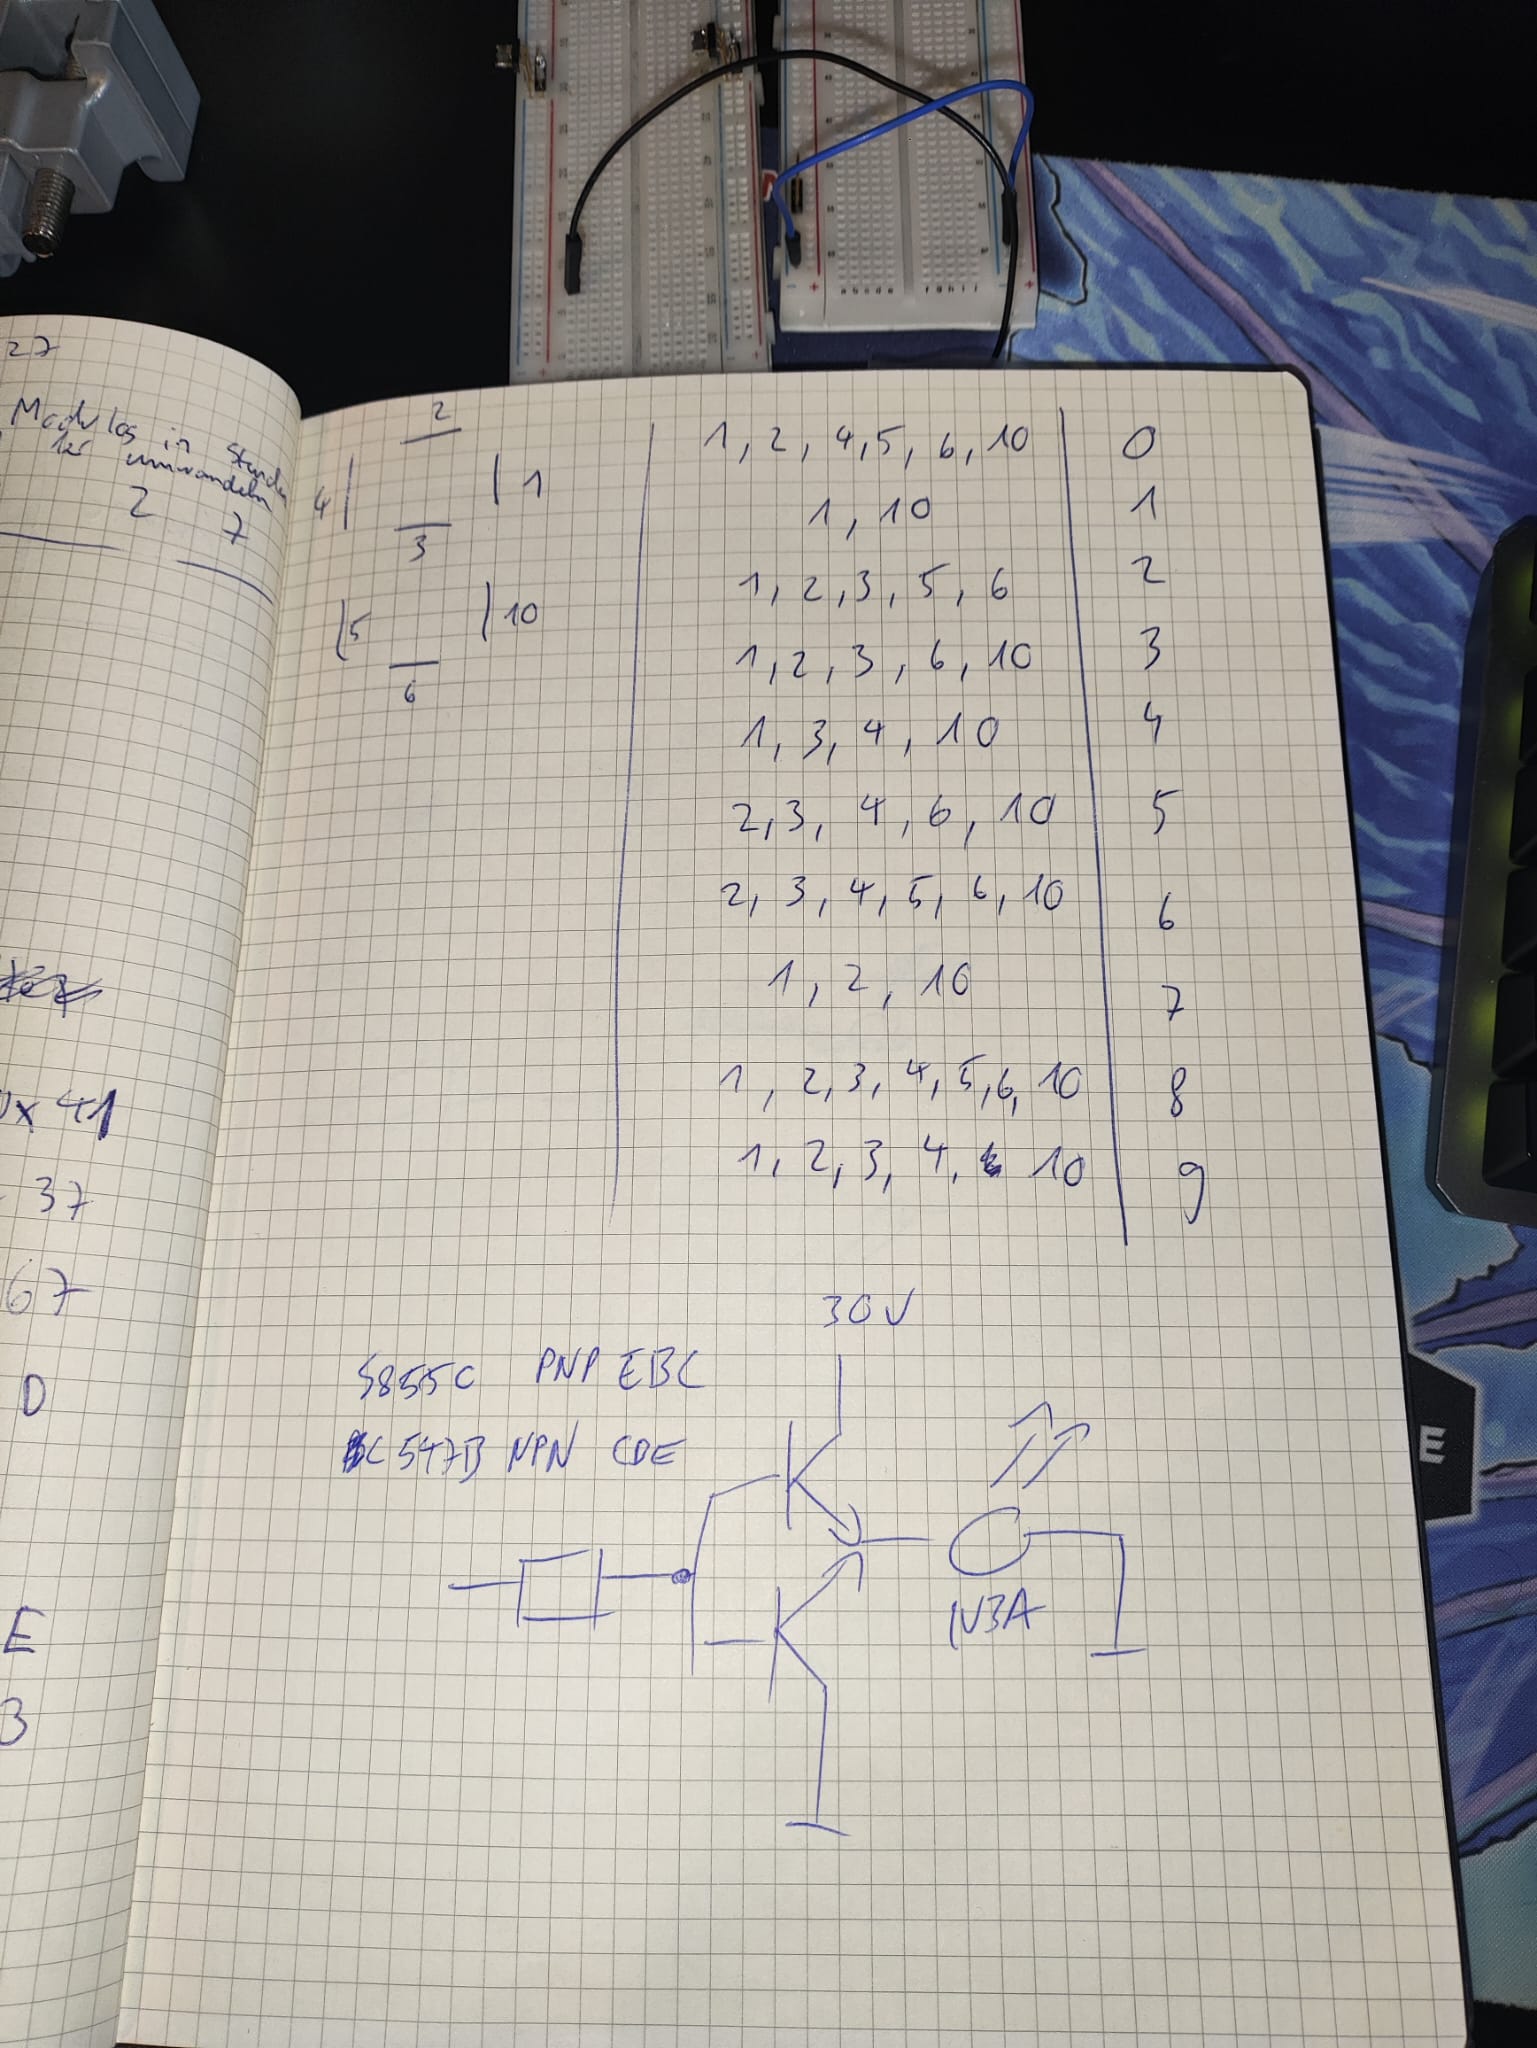 27
Modulos in Stunden
12er umwandeln
2 7
0x 41
37
67
D
E
3
2
4 1
3
5 10
6
1, 2, 4, 5, 6, 10 0
1, 10 1
1, 2, 3, 5, 6 2
1, 2, 3, 6, 10 3
1, 3, 4, 10 4
2, 3, 4, 6, 10 5
2, 3, 4, 5, 6, 10 6
1, 2, 10 7
1, 2, 3, 4, 5, 6, 10 8
1, 2, 3, 4, 10 9
30V
S855C PNP EBC
BC547B NPN CBE
1V3A
E